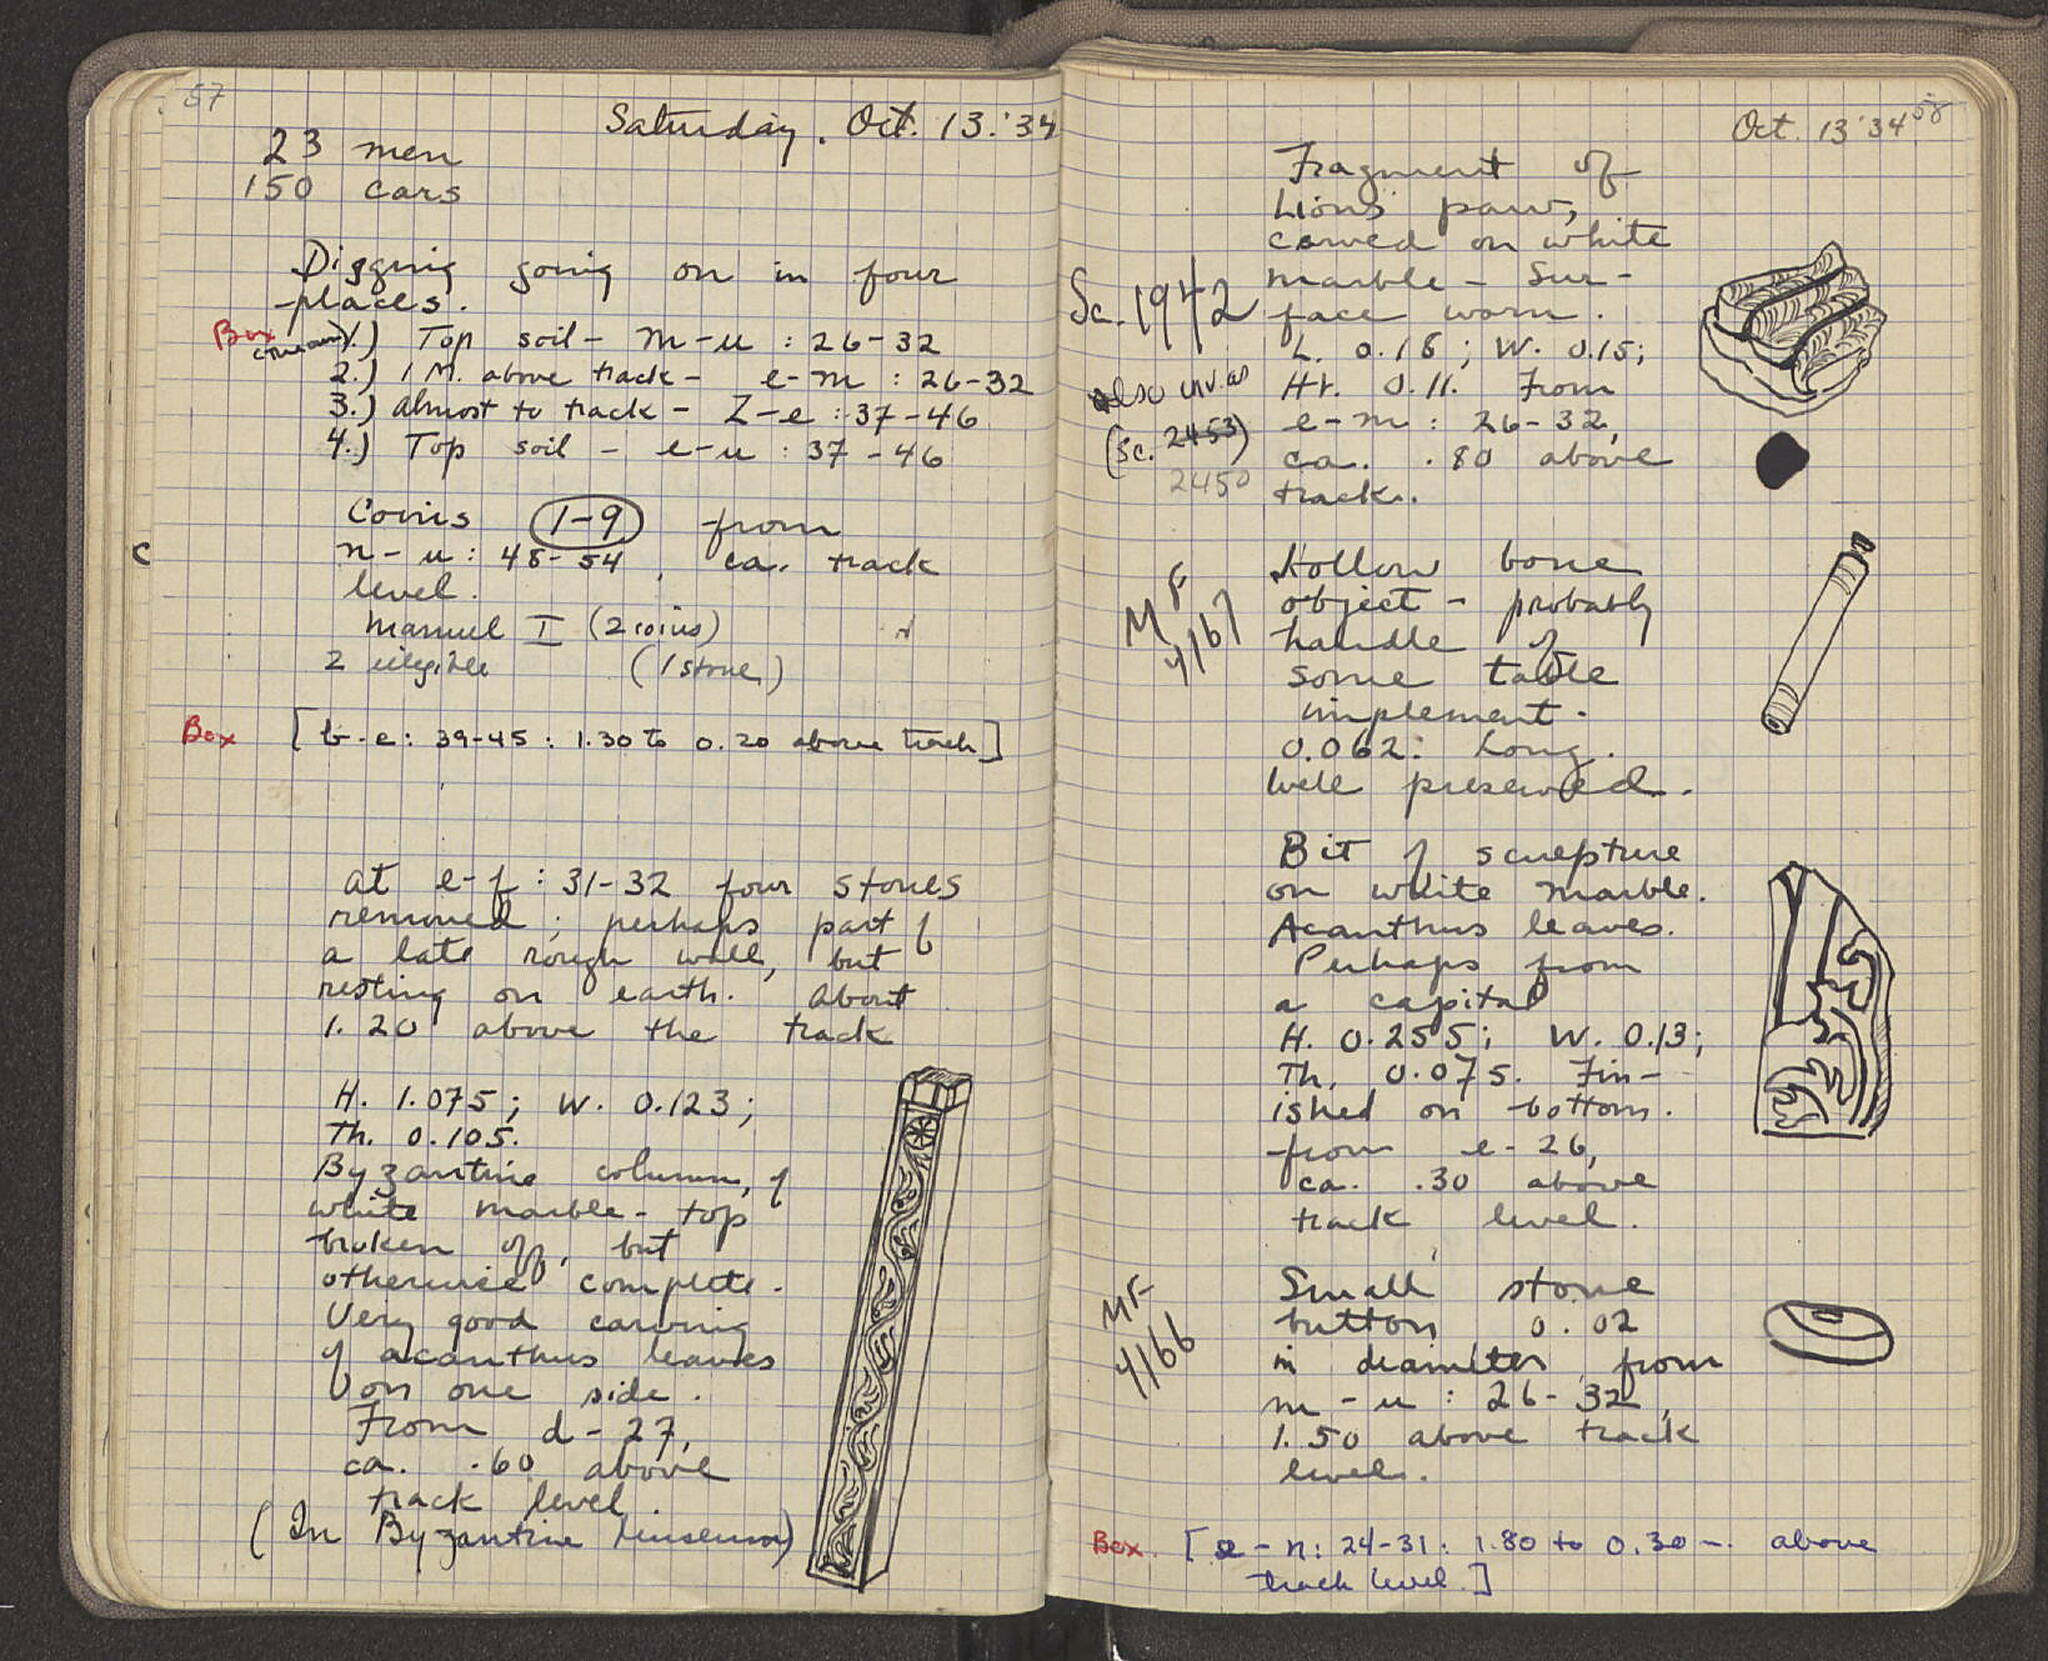 57
Saturday, Oct. 13. '34
23 men
150 cars
Digging going on in four
places.
Box
1.) Top soil - m-u : 26-32
2.) 1 M. above track - e-m : 26-32
3.) almost to track - Z-e : 37-46
4.) Top soil - e-u : 37-46
Coins 1-9 from
C
n-u : 48-54, ca. track
level.
Manuel I (2 coins)
2 illegible (1 stone)
Box [b-e : 39-45 : 1.30 to 0.20 above track]
at e-f : 31-32 four stones
removed ; perhaps part of
a late rough wall, but
resting on earth. About
1.20 above the track
H. 1.075 ; W. 0.123 ;
Th. 0.105.
Byzantine column, of
white marble - top
broken off, but
otherwise complete.
Very good carving
of acanthus leaves
on one side.
From d-27,
ca. .60 above
track level.
(In Byzantine Museum)
58
Oct. 13 '34
Fragment of
Lions paw,
carved on white
marble - Sur-
Sc. 1942 face worn.
L. 0.18 ; W. 0.15 ;
also inv. as Ht. 0.11. From
(Sc. 2453) e-m : 26-32,
ca. .80 above
2450 track.
Hollow bone
MF object - probably
4167 handle of
some table
implement.
0.062 : Long.
Well preserved.
Bit of sculpture
on white marble.
Acanthus leaves.
Perhaps from
a capital
H. 0.255 ; W. 0.13 ;
Th. 0.075. Fin-
ished on bottom.
from e-26,
ca. .30 above
track level.
MF Small stone
4166 button 0.02
in diameter from
m-u : 26-32,
1.50 above track
level.
Box [e-n : 24-31 : 1.80 to 0.30 - above
track level.]